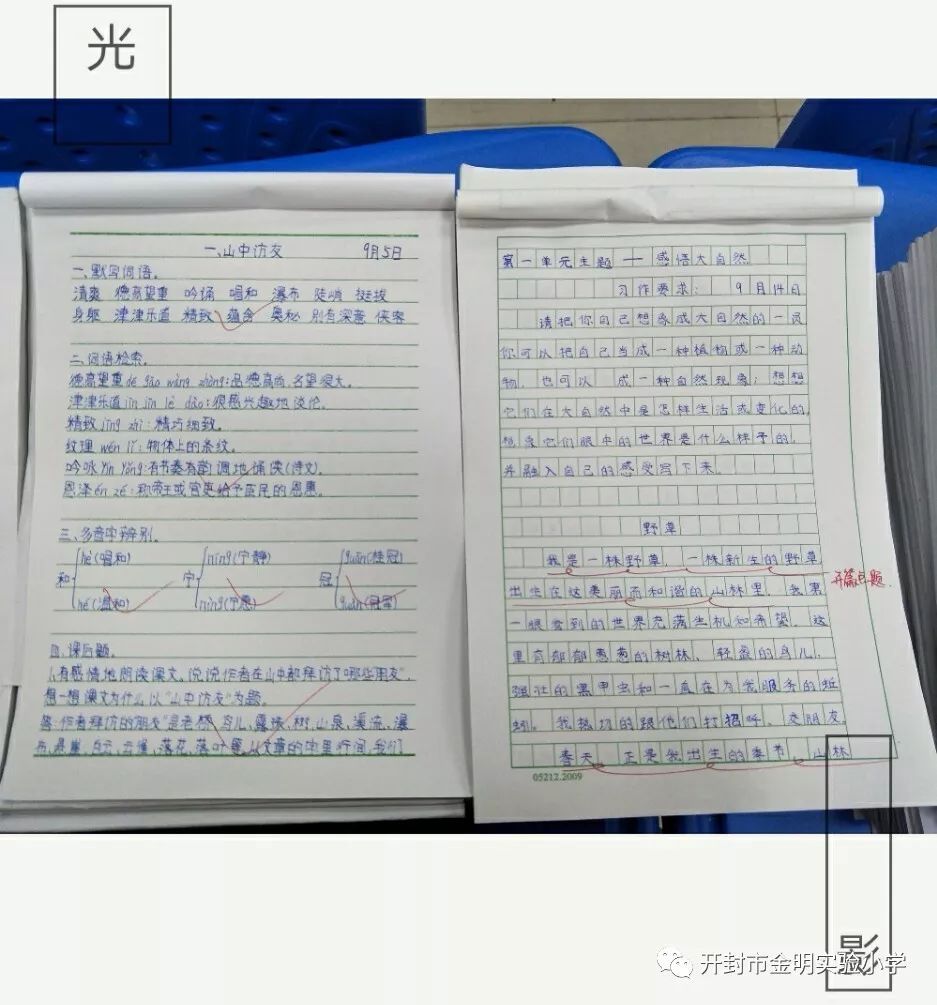 光
一、山中访友 9月5日
一、默写词语。
清爽 德高望重 吟诵 唱和 瀑布 陡峭 挺拔
身躯 津津乐道 精致 蕴含 奥秘 别有深意 侠客
二、词语检索。
德高望重dé gāo wàng zhòng:品德高尚,名望很大。
津津乐道jīn jīn lè dào:很感兴趣地谈论。
精致jīng zhì:精巧细致。
纹理wén lǐ:物体上的条纹。
吟咏yín yǒng:有节奏有韵调地诵读(诗文).
恩泽ēn zé:称帝王或官吏给予臣民的恩惠。
三、多音字辨别。
hè(唱和) níng(宁静) guān(桂冠)
和 宁 冠
hé(温和) nìng(宁愿) guàn(冠军)
四、课后题。
1.有感情地朗读课文,说说作者在山中都拜访了哪些朋友",
想一想课文为什么以"山中访友"为题。
答:作者拜访的朋友"是老桥、鸟儿、露珠、树、山泉、溪流、瀑
布、悬崖、白云、云雀、落花、落叶 从文章的字里行间,我们
第一单元主题——感悟大自然
习作要求: 9月14日
请把你自己想象成大自然的一员
你可以把自己当成一种植物或一种动
物,也可以 成一种自然现象;想想
它们在大自然中是怎样生活或变化的,
想象它们眼中的世界是什么样子的,
并融入自己的感受写下来。
野草
我是一株野草,一株新生的野草
出生在这美丽而和谐的山林里,我第
开篇点题
一眼看到的世界充满生机和希望。这
里有郁郁葱葱的树林、轻盈的鸟儿、
强壮的黑甲虫和一直在为我服务的蚯
蚓。我热切的跟他们打招呼、交朋友。
春天,正是我出生的季节,山林
05212.2009
影
开封市金明实验小学